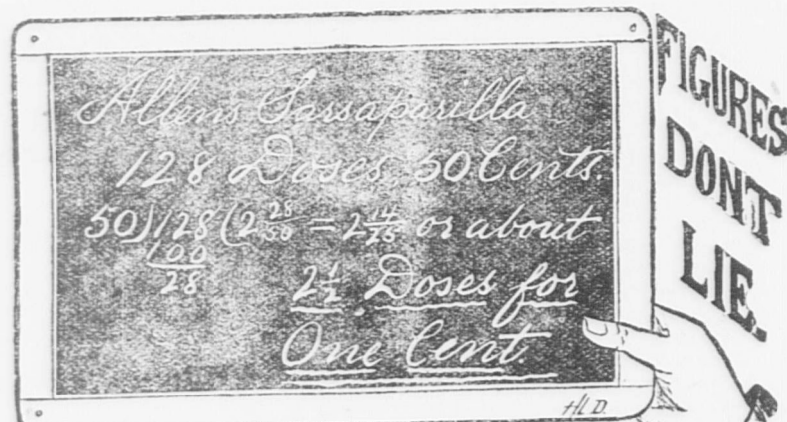 Allens Sarsaparilla
128 Doses 50 Cents.
50)128(2 28/50 = 2 14/25 or about
100
28
2 1/2 Doses for
One Cent.
H.L.D.
FIGURES
DONT
LIE.